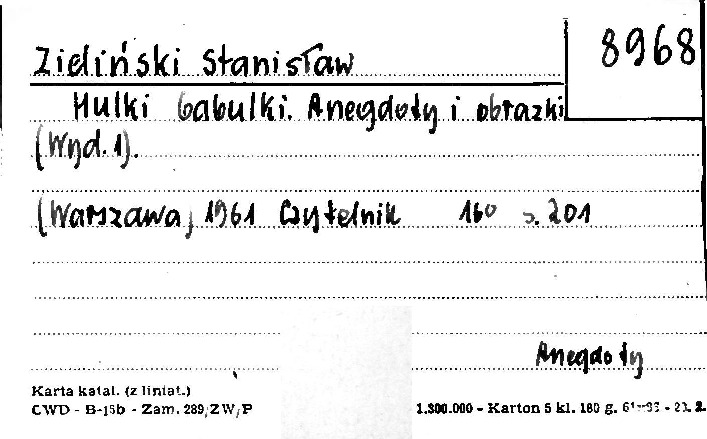 Zieliński Stanisław
8968
Hulki babulki. Anegdoty i obrazki
(Wyd. 1).
(Warszawa) 1961 Czytelnik 160 s. 201
Anegdoty
Karta katal. (z liniat.)
CWD - B-15b - Zam. 289/ZW/P
1.300.000 - Karton 5 kl. 180 g. 61